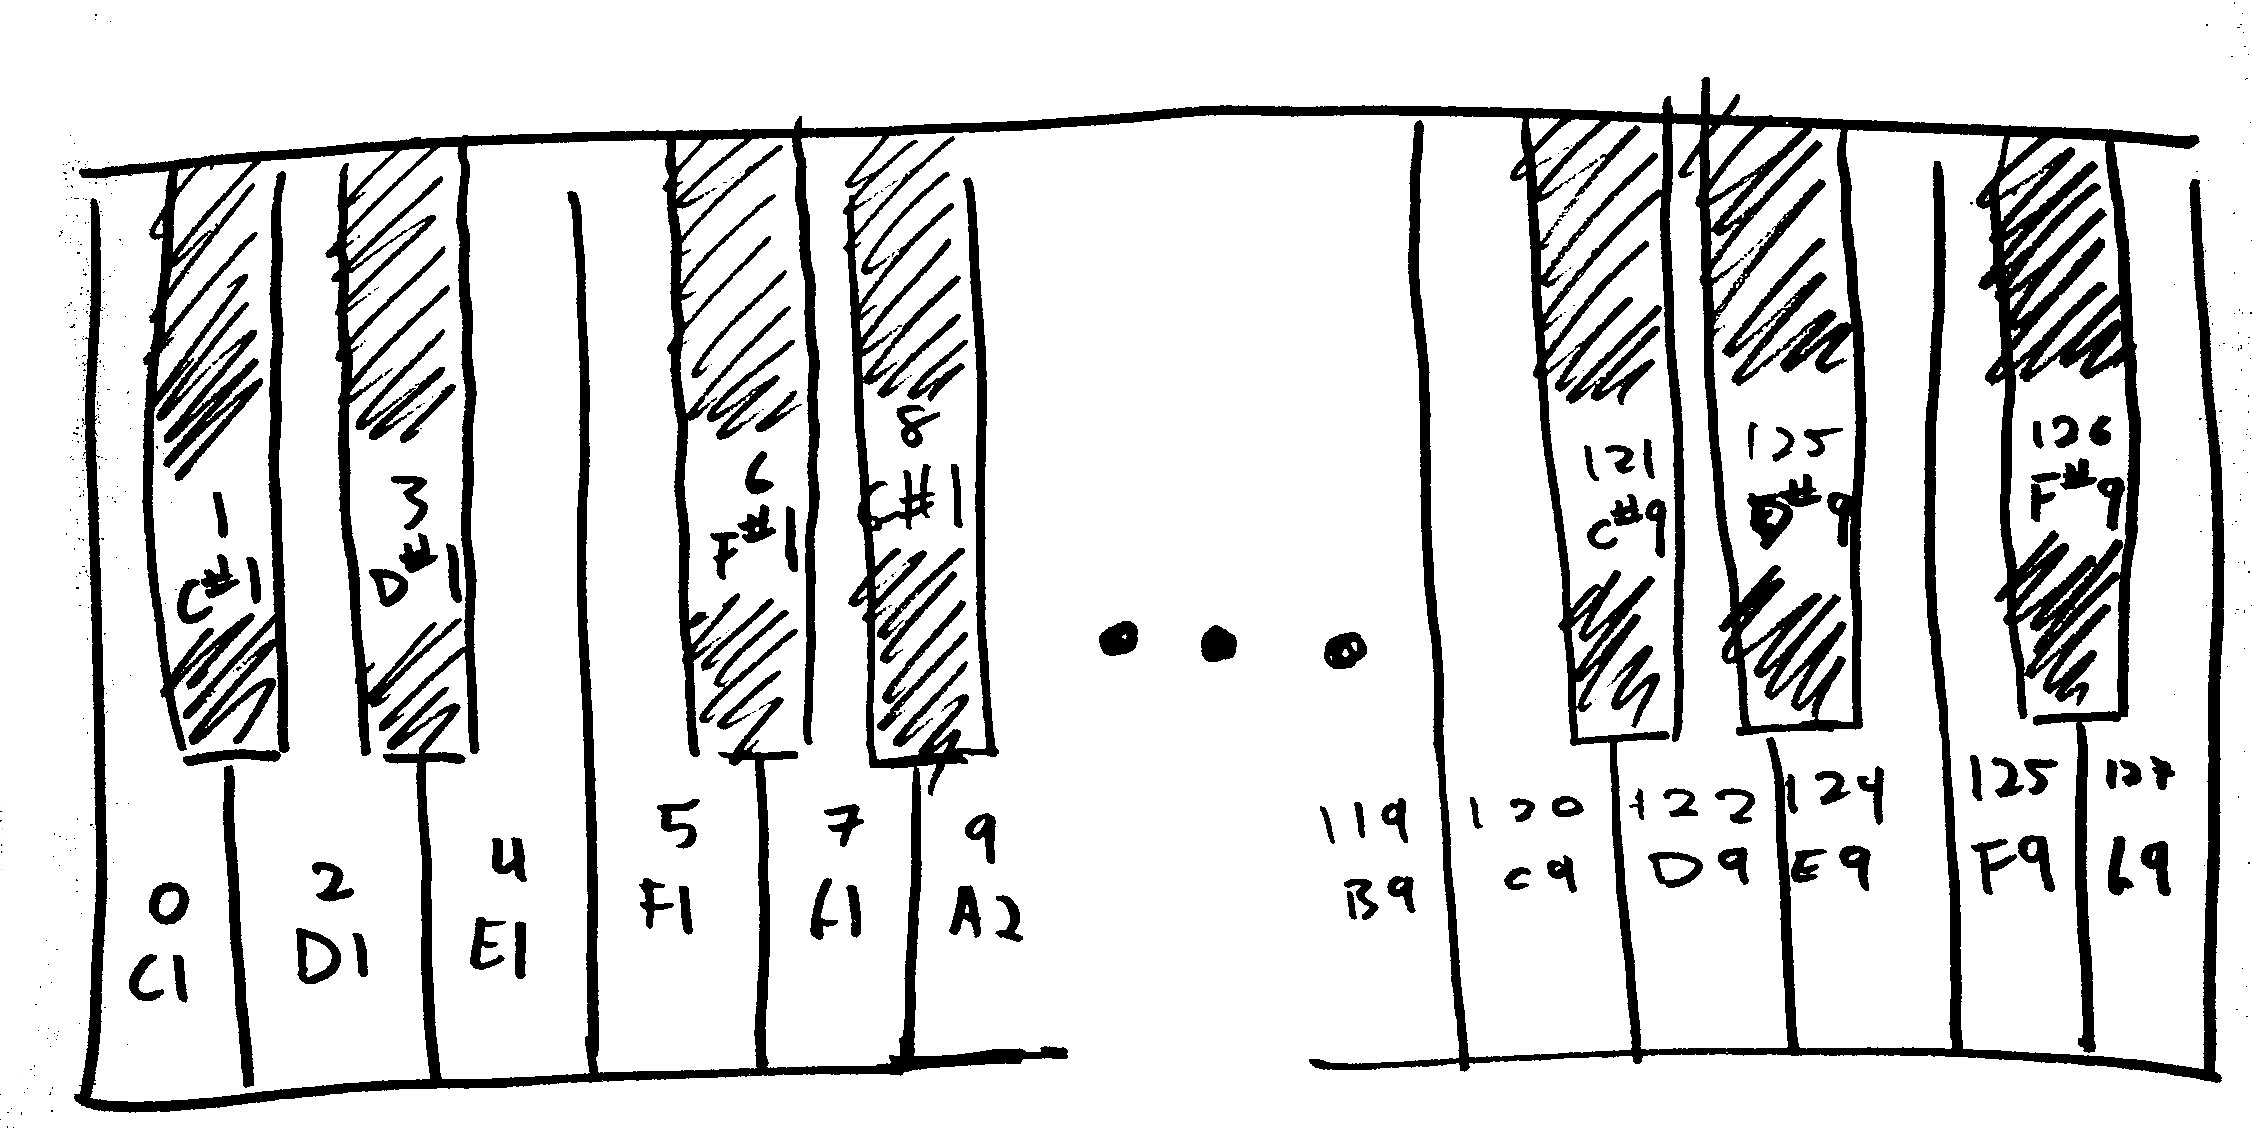 1
C#1
3
D#1
6
F#1
8
G#1
121
C#9
125
D#9
126
F#9
0
C1
2
D1
4
E1
5
F1
7
G1
9
A2
119
B9
120
C9
122
D9
124
E9
125
F9
127
G9